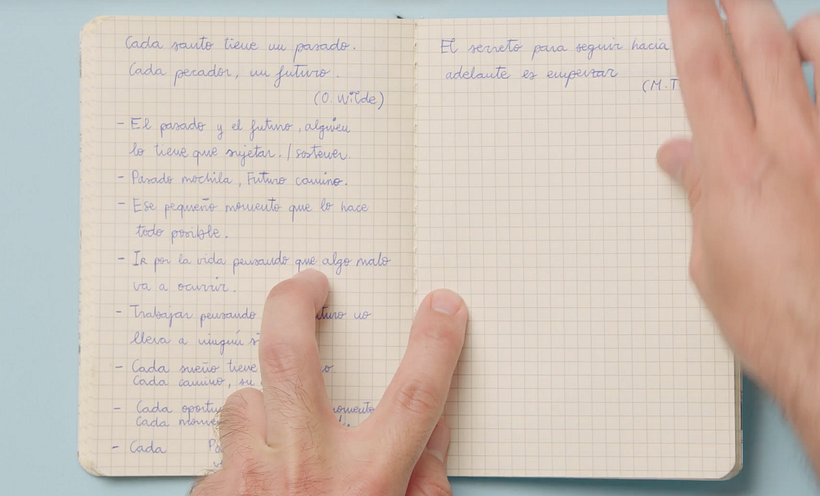 Cada santo tiene un pasado.
Cada pecador, un futuro.
(O. Wilde)
- El pasado y el futuro, alguien
lo tiene que sujetar. / sostener.
- Pasado mochila, Futuro camino.
- Ese pequeño momento que lo hace
todo posible.
- Ir por la vida pensando que algo malo
va a ocurrir.
- Trabajar pensando futuro no
lleva a ningún
- Cada sueño tiene
Cada camino, su
- Cada
Cada
- Cada
El secreto para seguir hacia
adelante es empezar
(M. T